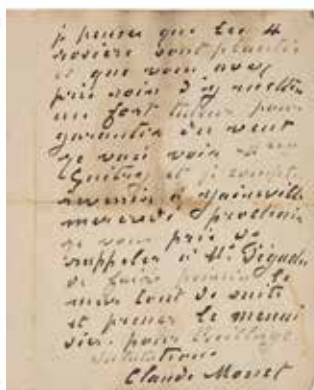 je pense que les 4
rosiers sont plantés
et que vous avez
pris soin d'y mettre
un fort tuteur pour
garantir du vent
je vais voir
Guitry et je compte
revenir à
mercredi prochain
je vous prie de
rappeler à Mr
de faire peindre le
mur tout de suite
et prenez le menui
sier pour treillage
salutations
Claude Monet